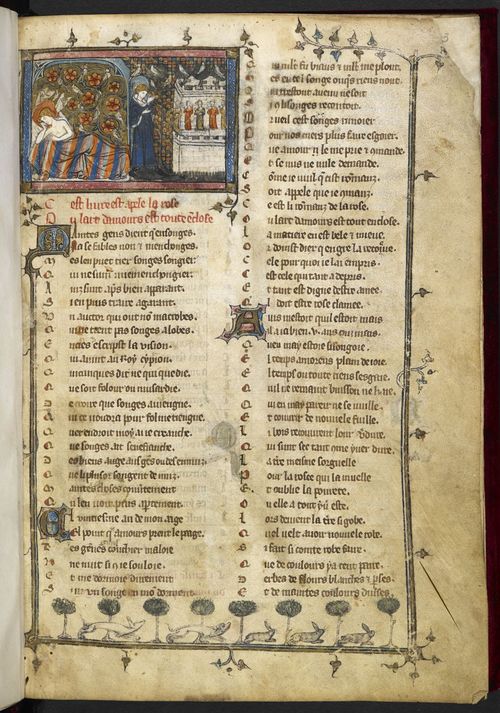 C est livre est apele la rose
O u lart damours est toute enclose
M aintes gens dient qen songes
N a se fables non & menconges
M es len puet tiex songes songier
Q ui ne sunt mie mencongier
A ins sunt apres bien aparant
S i en puis traire a garant
U n auctor qui ot non macrobes
Q ui ne tient pas songes a lobes
escript la vision
Q ui avint au roy
Q uiconques die ne qui que die
Q ue soit folour ou musardie
D e croire que songes aviengne
Q ui ce voudra pour fol me tiengne
Q uer endroit moy ai je creance
Q ue songes
D es biens
Q ue li plusor songent de nuiz
M aintes choses couvertement
Q u len voit puis apertement
E l vintiesme an de mon aage
E l point qamours prent le paage
D es genes couchier maloie
U ne nuit si com je souloie
E t me dormoie durement
S i vi un songe en mon dormant
Q ui mlt fu biaus & mlt me plout
M es en ce songe onques riens nout
Q ui trestout avenu ne soit
S i com li songes recontoit
O r vueil cest songes rimoier
P our vos cuers plus faire esgaier
Q ue amors le me prie & comande
E t se nus ne nule demande
C ome je vueil que cist romanz
S oit apele que je comanz
C e est li romanz de la rose
O u lart damours est tout enclose
L a matiere en est bele & nueve
O r doinst diex quen gre la recoive
C ele pour qui je lai empris
C est cele qui tant a de pris
E t tant est digne destre amee
Q uel doit estre rose clamee
A vis mestoit quil estoit mais
Il a ia bien .v. ans ou mais
Q uen may estoie si songoie
E l temps amoreus plain de joie
E l temps ou toute riens sesgaie
Q ue len ne voit buisson ne haie
Q ui en may parer ne se vuille
E t couvrir de nouvele fuille
L i bois recouvrent lour verdure
Q ui sunt sec tant come yver dure
L a terre meisme sorguelle
P our la rosee qui la muelle
E t oublie la poverte
O u elle a tout
L ors devient la terre si gobe
Q uel veut avoir nouvele robe
S i fait si cointe robe faire
Q ue de coulours ya cent paire
D erbes de flours blanches & perses
E t de maintes coulours diverses